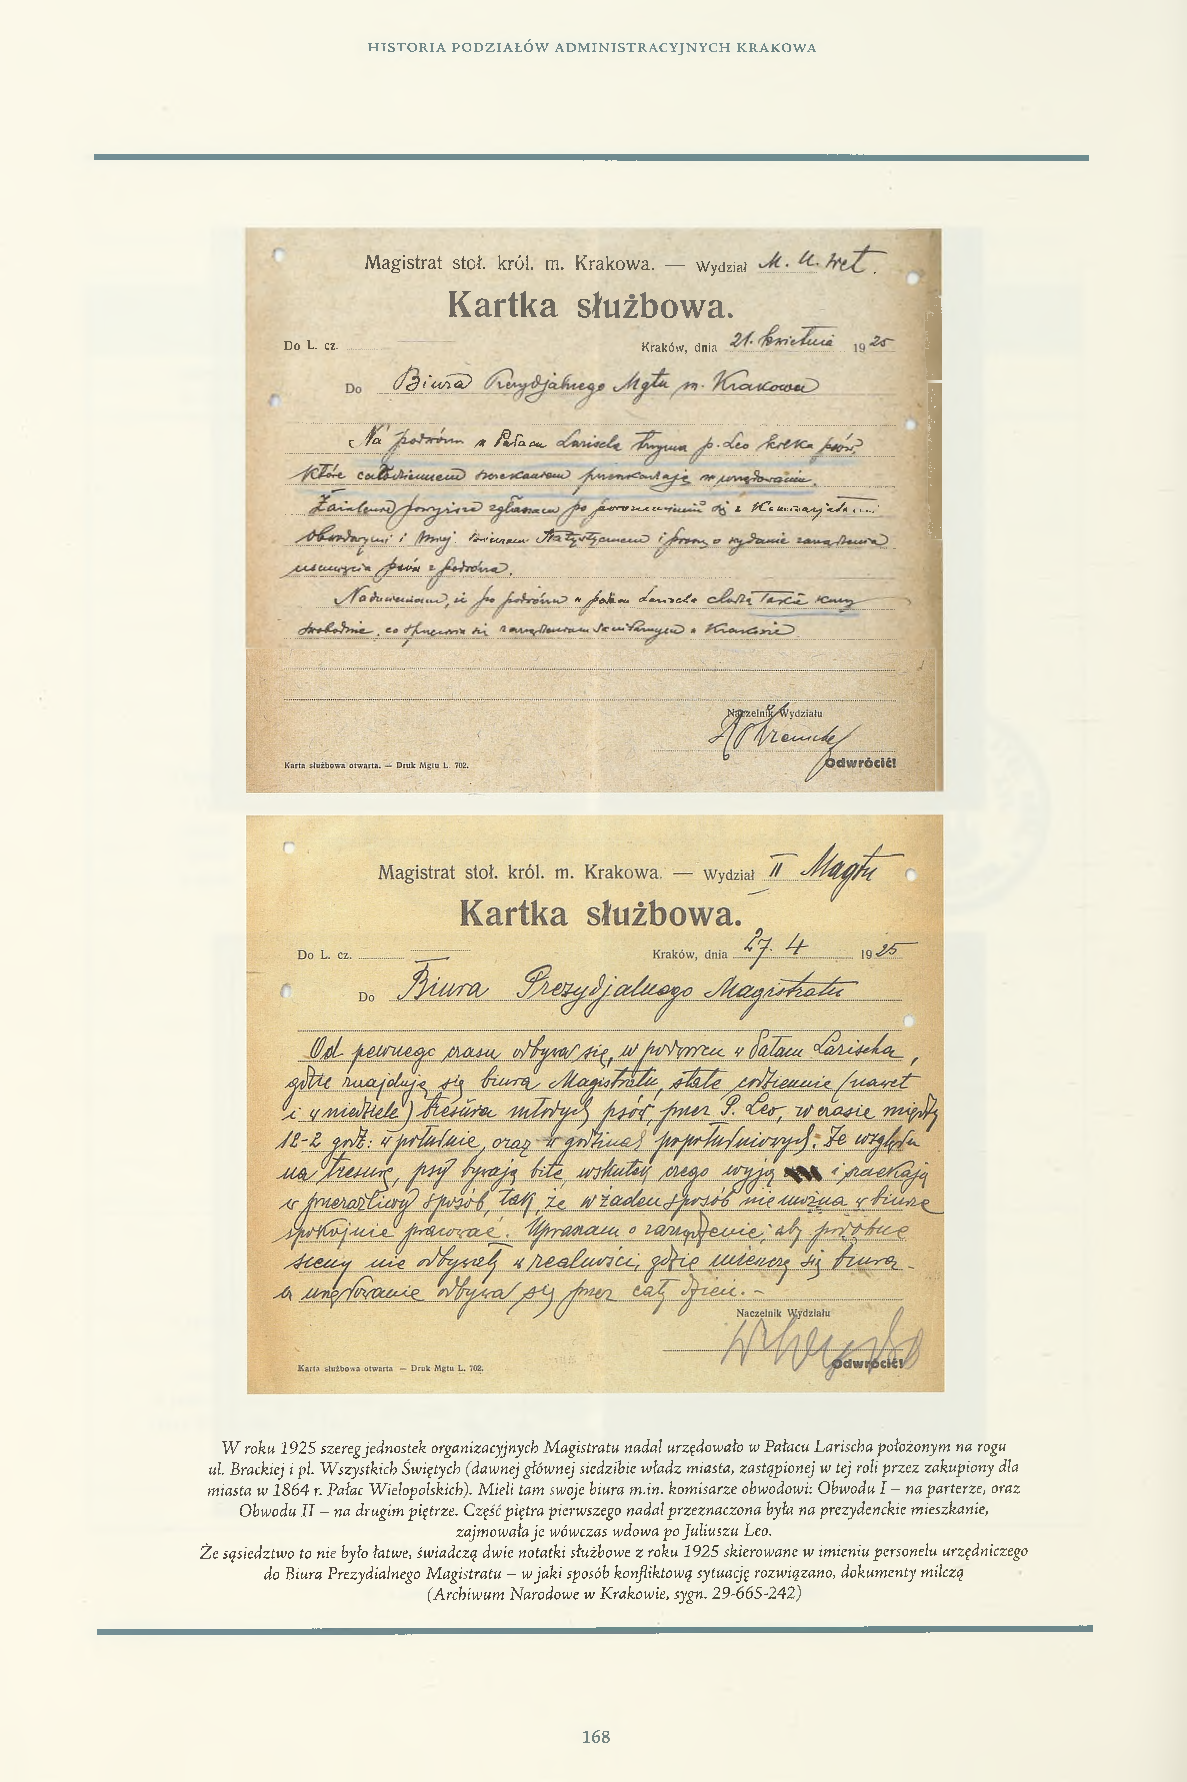 HISTORIA PODZIAŁÓW ADMINISTRACYJNYCH KRAKOWA
Magistrat stoł. król. m. Krakowa. — Wydział M. U. Wet.
Kartka służbowa.
Do L. cz.
Kraków, dnia 21. kwietnia 1925
Do Biura Prezydjalnego Mgtu m. Krakowa
Na podwórzu w Pałacu Larischa trzyma p. Leo kilka psów,
które całodziennem szczekaniem przeszkadzają w urzędowaniu.
powyższe zgłaszam po porozumieniu się z Komisarjatami
Obwodowymi i Miej. Biurem Statystycznem i proszę o wydanie zarządzenia
usunięcia psów z podwórza.
Nadmieniam, iż po podwórzu w pałacu Larischa chodzą także kury
swobodnie, co sprzeciwia się zarządzeniom sanitarnym w Krakowie
Naczelnik Wydziału
Karta służbowa otwarta. — Druk Mgtu L. 702.
Odwrócić!
Magistrat stoł. król. m. Krakowa. — Wydział II Magtu
Kartka służbowa.
Do L. cz.
Kraków, dnia 27. 4 1925
Do Biura Prezydjalnego Magistratu
Od pewnego czasu odbywa się, w podworcu w Pałacu Larischa,
gdzie znajdują się biura Magistratu, stale codziennie (nawet
i w niedziele) tresura młodych psów, przez P. Leo, w czasie między
12-2 godz: w południe, oraz w godzinach popołudniowych. Ze względu
na tresurę, psy bywają bite, wskutek czego wyją i szczekają
w przeraźliwy sposób, tak, że w żaden sposób nie można w biurze
spokojnie pracować. Upraszam o zarządzenie, aby podobne
sceny nie odbywały w realności, gdzie mieszczą się biura
a urzędowanie odbywa się przez cały dzień. -
Naczelnik Wydziału
Karta służbowa otwarta — Druk Mgtu L. 702.
Odwrócić!
W roku 1925 szereg jednostek organizacyjnych Magistratu nadal urzędowało w Pałacu Larischa położonym na rogu
ul. Brackiej i pl. Wszystkich Świętych (dawnej głównej siedzibie władz miasta, zastąpionej w tej roli przez zakupiony dla
miasta w 1864 r. Pałac Wielopolskich). Mieli tam swoje biura m.in. komisarze obwodowi: Obwodu I – na parterze, oraz
Obwodu II – na drugim piętrze. Część piętra pierwszego nadal przeznaczona była na prezydenckie mieszkanie,
zajmowała je wówczas wdowa po Juliuszu Leo.
Że sąsiedztwo to nie było łatwe, świadczą dwie notatki służbowe z roku 1925 skierowane w imieniu personelu urzędniczego
do Biura Prezydialnego Magistratu – w jaki sposób konfliktową sytuację rozwiązano, dokumenty milczą
(Archiwum Narodowe w Krakowie, sygn. 29-665-242)
168